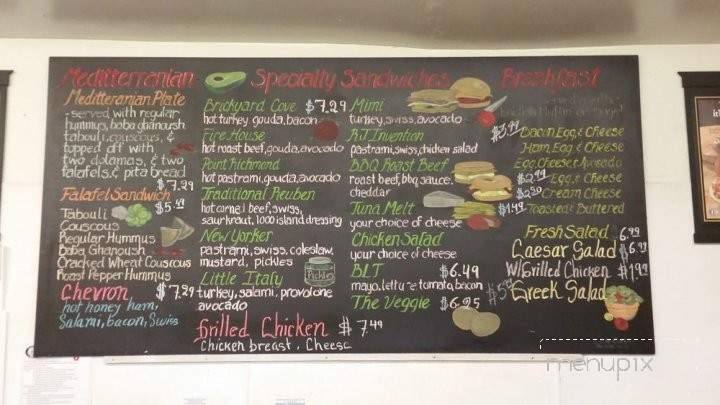 Mediterranian
Mediteranian Plate
-served with regular
hummus, baba ghanoush
tabouli, couscous, &
topped off with
two dolamas, & two
falafels, & pita bread
$7.99
Falafel Sandwich
$5.49
Tabouli
Couscous
Regular Hummus
Baba Ghanoush
Cracked Wheat Couscous
Roast Pepper Hummus
Chevron $7.29
hot honey ham,
Salami, bacon, Swiss
Specialty Sandwiches
Brickyard Cove $7.29
hot turkey, gouda, bacon
Fire House
hot roast beef, gouda, avocado
Point Richmond
hot pastrami, gouda, avocado
Traditional Reuben
hot corned beef, swiss,
saurkraut, 1000 island dressing
New Yorker
pastrami, swiss, coleslaw,
mustard, pickles
Pickles
Little Italy
turkey, salami, provolone
avocado
Grilled Chicken $7.49
Chicken breast, Cheese
Mimi
turkey, swiss, avocado
RJ Invention
pastrami, swiss, chicken salad
BBQ Roast Beef
roast beef, bbq sauce,
cheddar
Tuna Melt
your choice of cheese
Chicken Salad
your choice of cheese
BLT $6.49
mayo, lettuce tomato, bacon
The Veggie $6.25
Breakfast
served on either
English Muffin or Bagel
$3.99 Bacon Egg & Cheese
Ham, Egg & Cheese
Egg, Cheese & Avocado
$2.99 Egg & Cheese
$2.50 Cream Cheese
$1.49 Toasted & Buttered
Fresh Salad 6.99
Caesar Salad $6.99
W/Grilled Chicken
Greek Salad
menupix